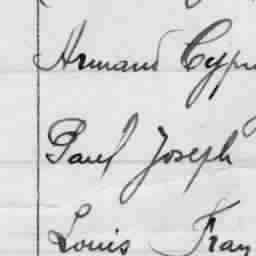 Armand Cypr
Paul Joseph
Louis Fran